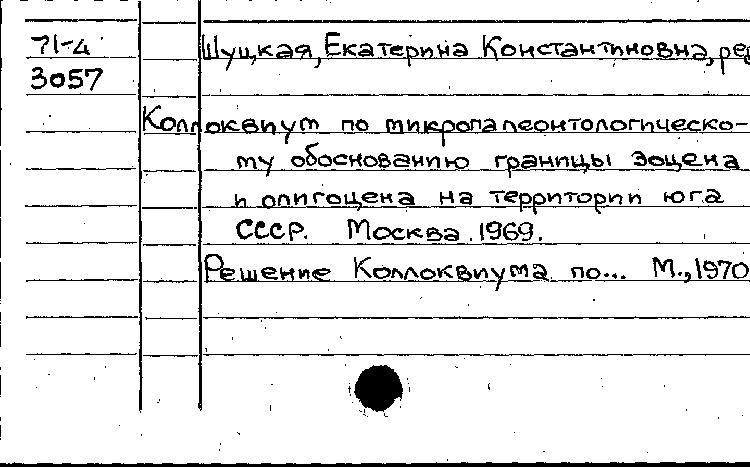 71-4 Шуцкая, Екатерина Константиновна, ред
3057
Коллоквиум по микропалеонтологическо-
му обоснованию границы эоцена
и олигоцена на территории юга
СССР. Москва. 1969.
Решение Коллоквиума по... М., 1970